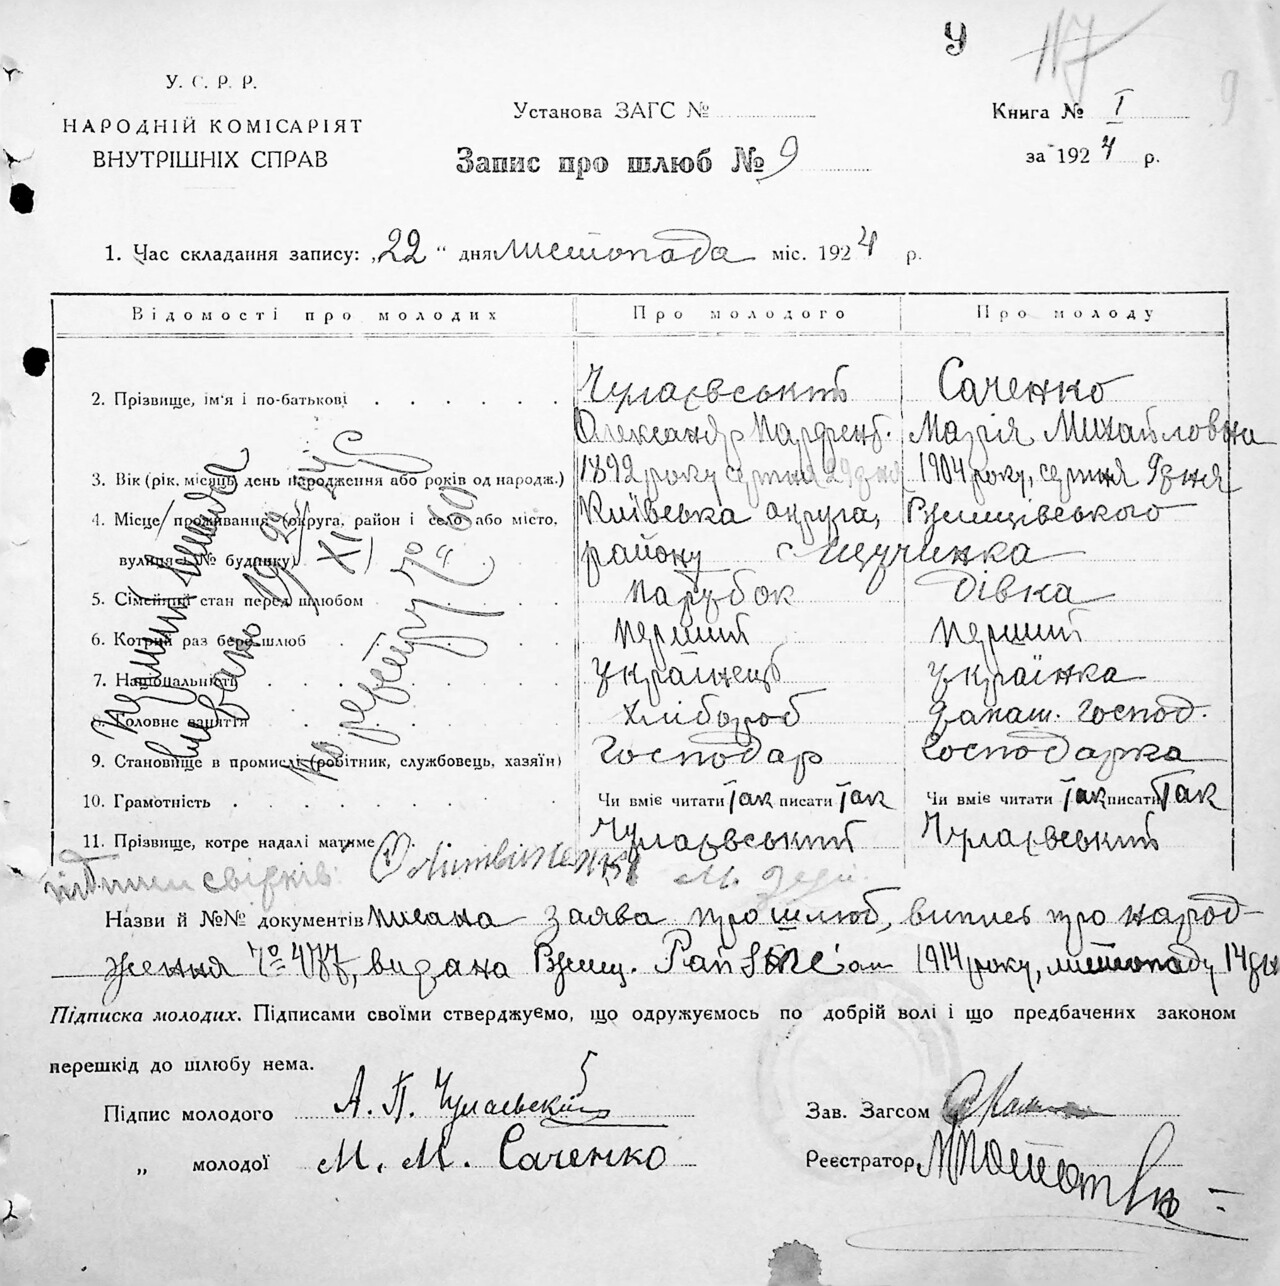 У. С. Р. Р.
НАРОДНІЙ КОМІСАРІЯТ
ВНУТРІШНІХ СПРАВ
У
117
9
Установа ЗАГС №
Запис про шлюб № 9
Книга № I
за 1924 р.
1. Час складання запису: „22“ дня листопада міс. 1924 р.
Відомості про молодих Про молодого Про молоду
2. Прізвище, ім'я і по-батькові Чулаєвський Саченко
Олександр Парфент. Марія Михайловна
3. Вік (рік, місяць, день народження або років од народж.) 1892 року серпня 29 дня 1904 року, серпня 9 дня
4. Місце проживання (округа, район і село або місто, Київська округа, Ржищівського
вулиця і № будинку) району с Щучинка
5. Сімейний стан перед шлюбом парубок дівка
6. Котрий раз бере шлюб перший перший
7. Національність українець українка
8. Головне заняття хлібороб домаш. господ.
9. Становище в промислі (робітник, службовець, хазяїн) Господар Господарка
10. Грамотність Чи вміє читати так писати так Чи вміє читати так писати так
11. Прізвище, котре надалі матиме Чулаєвський Чулаєвський
підписи свідків:
Назви й №№ документів писана заява про шлюб, випись про народ-
ження № 477, видана Ржищ. Рай 1914 року, листопаду 14 дня
Підписка молодих. Підписами своїми стверджуємо, що одружуємось по добрій волі і що предбачених законом
перешкід до шлюбу нема.
Підпис молодого А. П. Чулаевский Зав. Загсом
„ молодої М. М. Саченко Реєстратор